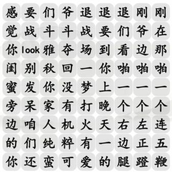 感要们爷退退退刚刚
觉战斗斗战
你look雅夺场到看边那
闺别秋回一你啪啪啪
蜜发你没梦上一一一
旁呆家有打晚个个个
边咱人机火天右左连
的们纯粹有正正五
你还蛮可爱的腿蹬鞭